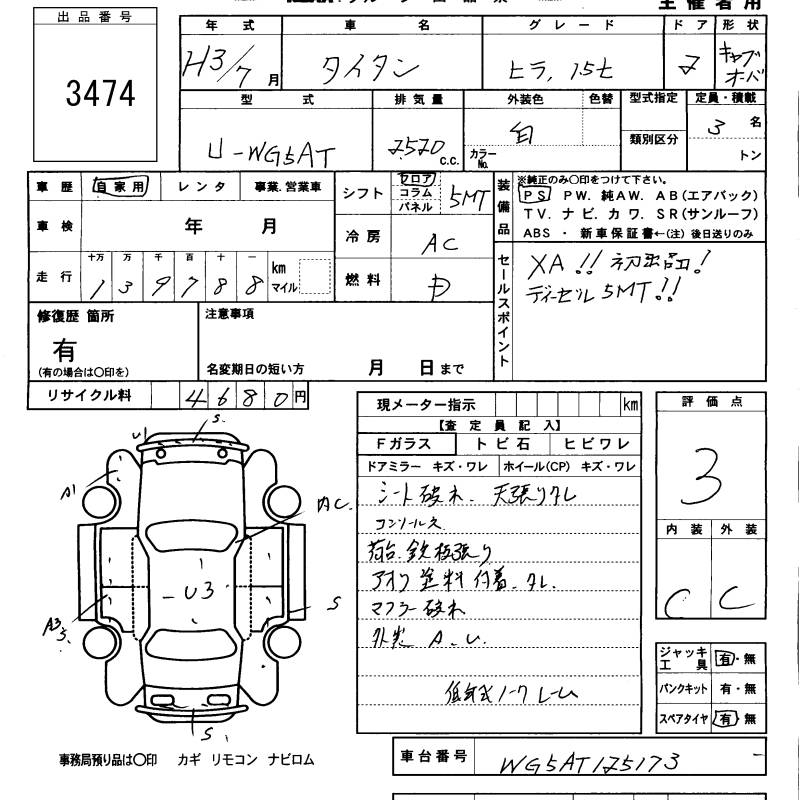 主催者用
出品番号
3474
年式 車名 グレード ドア 形状
H3/7月 タイタン ヒラ, 1.5t 2 キャブオーバ
型式 排気量 外装色 色替 型式指定 定員・積載
U-WG5AT 2520 c.c. カラーNo. 白 類別区分 3名
トン
車歴 自家用 レンタ 事業.営業車
シフト フロア コラム パネル 5MT
装備品 ※純正のみ〇印をつけて下さい。
PS PW. 純AW. AB(エアバック)
TV. ナビ. カワ. SR(サンルーフ)
ABS ・ 新車保証書←(注) 後日送りのみ
車検 年 月
冷房 AC
走行 十万 万 千 百 十 一
139788 km マイル
燃料 D
セールスポイント
XA!! 初出品!
ディーゼル 5MT!!
修復歴 箇所
有
(有の場合は〇印を)
注意事項
名変期日の短い方 月 日まで
リサイクル料 4680円
現メーター指示 km
【査定員記入】
Fガラス トビ石 ヒビワレ
ドアミラー キズ・ワレ ホイール(CP) キズ・ワレ
シート破れ. 天張りタレ
コンソール欠
荷台.鉄板張り
アオリ塗料付着.タレ.
マフラー破れ
外装 A.U.
低年式ノークレーム
評価点
3
内装 外装
C C
S.
U1
A1
内C.
U3
A3
S
S
ジャッキ工具 有・無
パンクキット 有・無
スペアタイヤ 有・無
事務局預り品は〇印 カギ リモコン ナビロム
車台番号 WG5AT125173